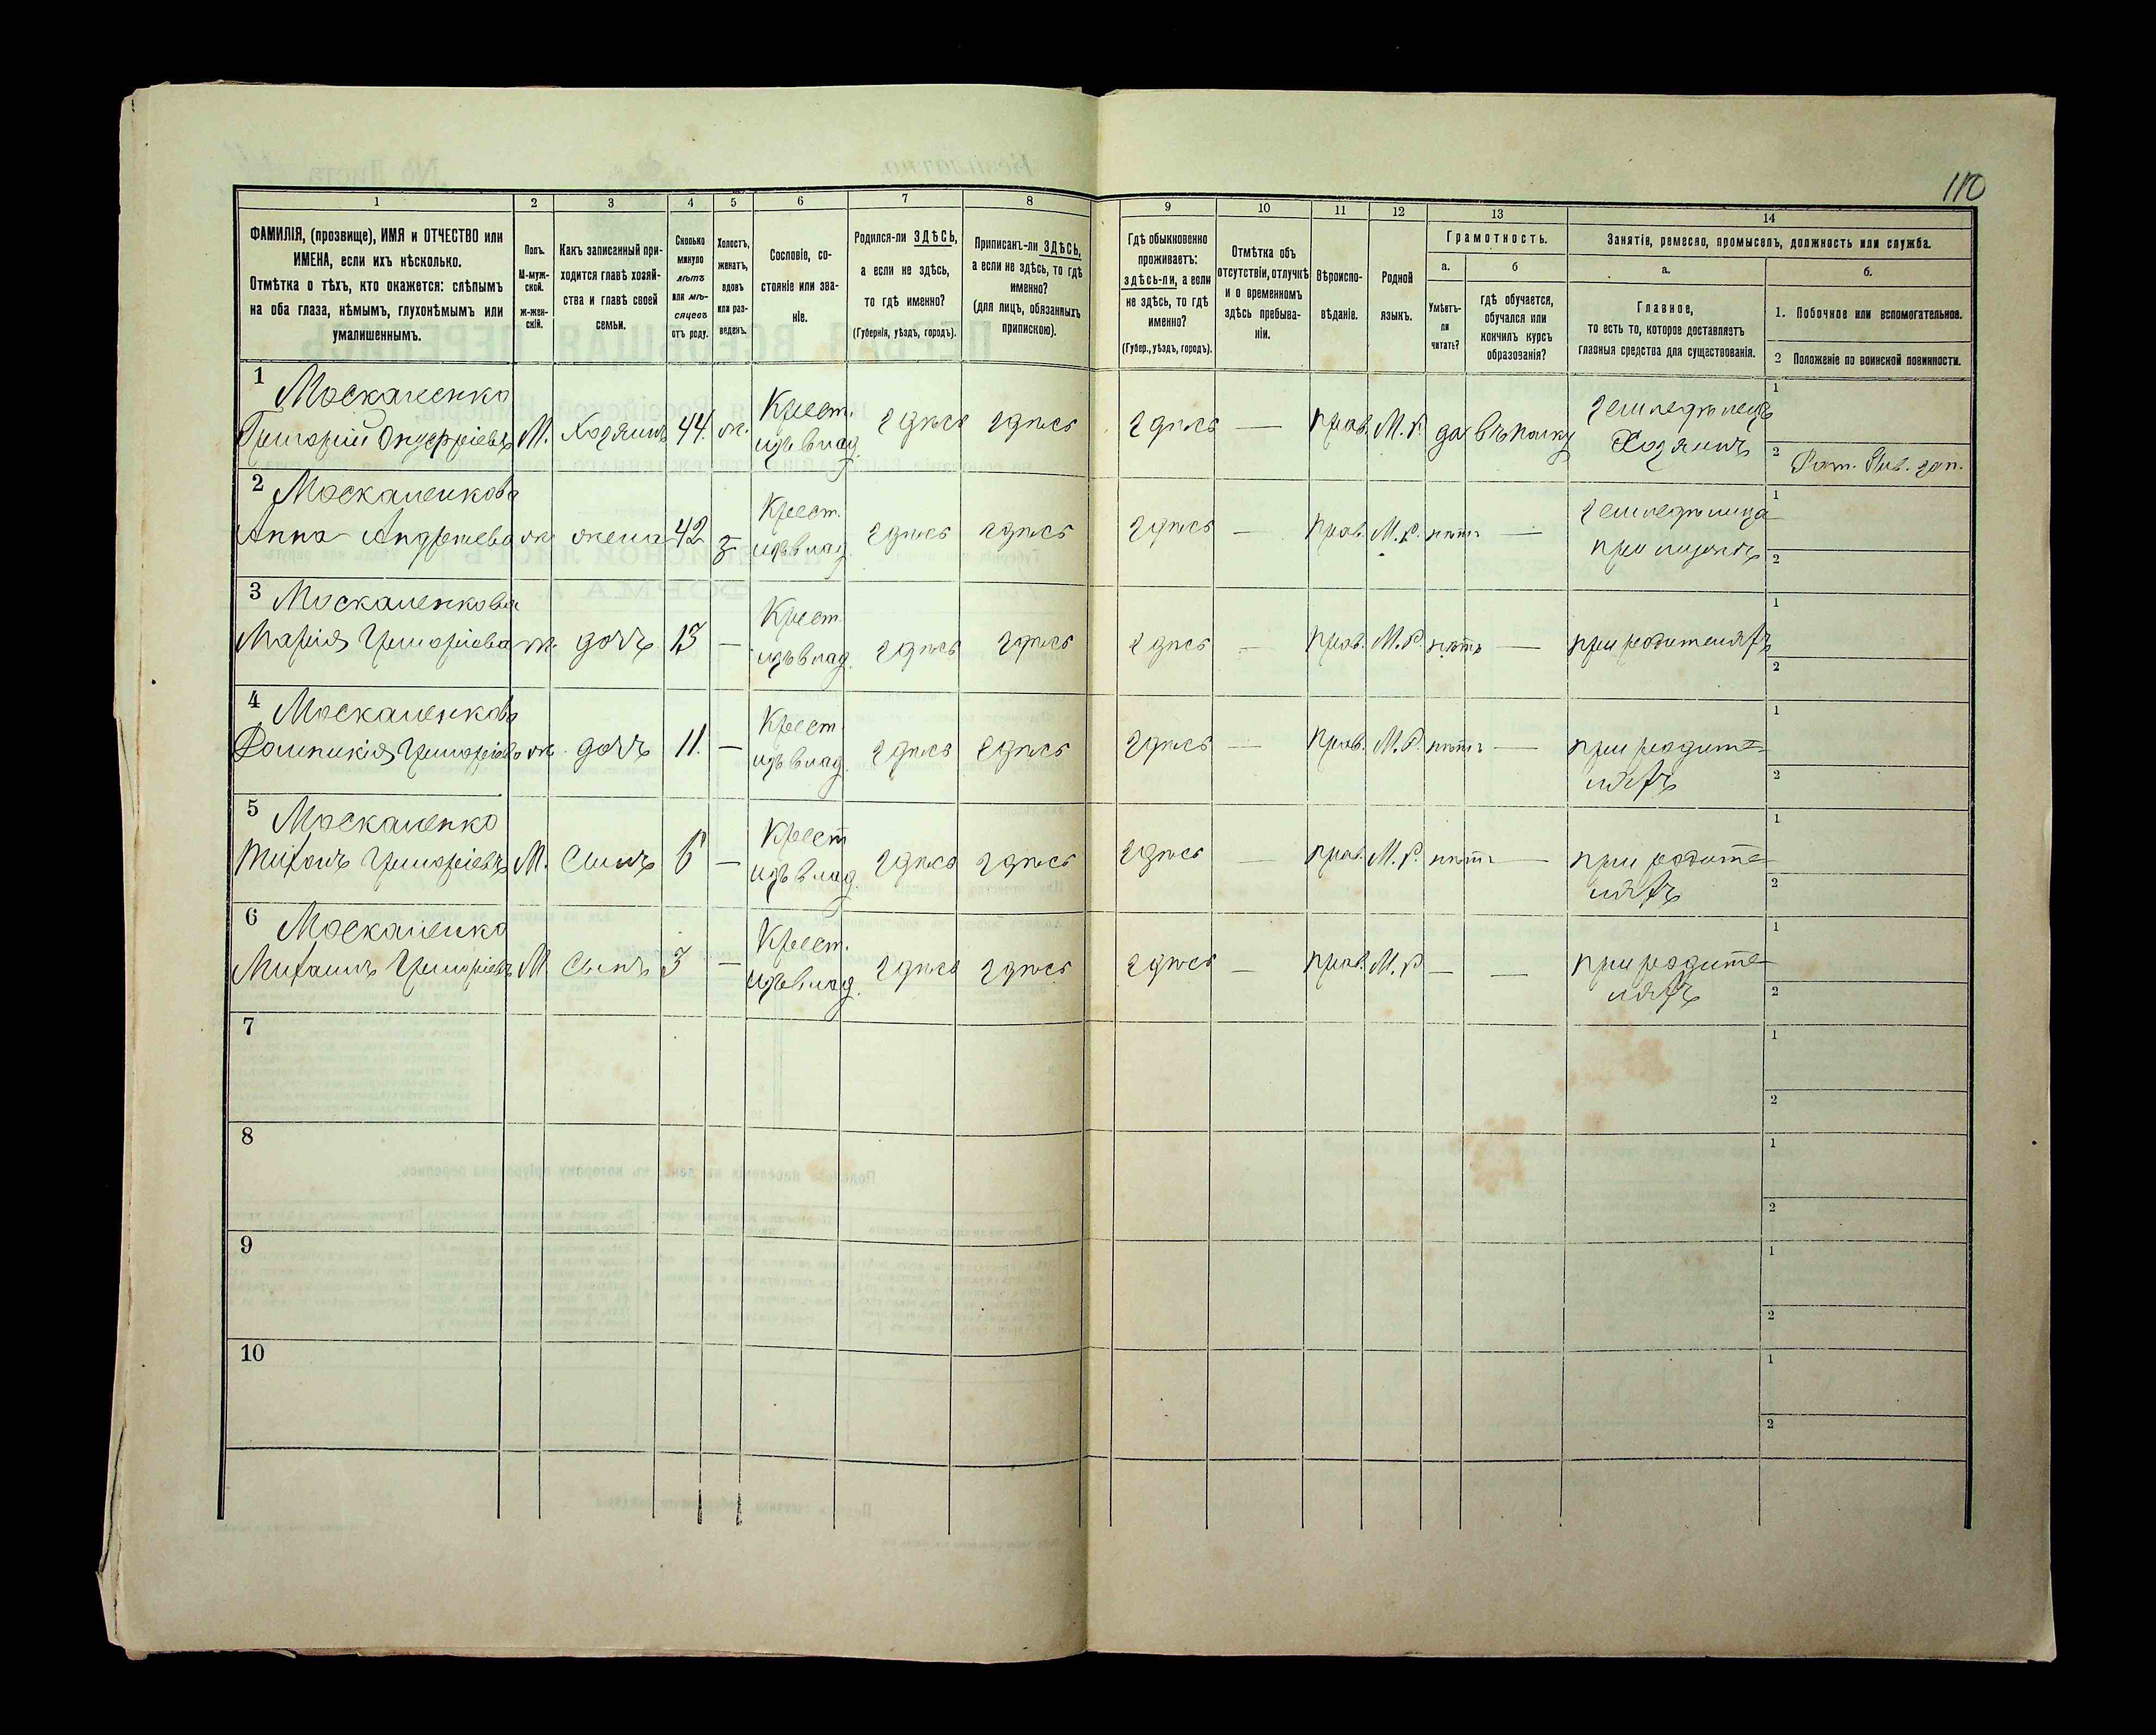 110
1
2
3
4
5
6
7
8
9
10
11
12
13
14
ФАМИЛІЯ, (прозвище), ИМЯ и ОТЧЕСТВО или
ИМЕНА, если ихъ нѣсколько.
Отмѣтка о тѣхъ, кто окажется: слѣпымъ
на оба глаза, нѣмымъ, глухонѣмымъ или
умалишеннымъ.
Полъ.
М-муж-
ской.
ж-жен-
скій.
Какъ записанный при-
ходится главѣ хозяй-
ства и главѣ своей
семьи.
Сколько
минуло
лѣтъ
или мѣ-
сяцевъ
отъ роду.
Холостъ,
женатъ,
вдовъ
или раз-
веденъ.
Сословіе, со-
стояніе или зва-
ніе.
Родился-ли ЗДѢСЬ,
а если не здѣсь,
то гдѣ именно?
(Губернія, уѣздъ, городъ).
Приписанъ-ли ЗДѢСЬ,
а если не здѣсь, то гдѣ
именно?
(для лицъ, обязанныхъ
припискою).
Гдѣ обыкновенно
проживаетъ:
здѣсь-ли, а если
не здѣсь, то гдѣ
именно?
(Губер., уѣздъ, городъ).
Отмѣтка объ
отсутствіи, отлучкѣ
и о временномъ
здѣсь пребыва-
ніи.
Вѣроиспо-
вѣданіе.
Родной
языкъ.
Грамотность.
а.
Умѣетъ-
ли
читать?
б
гдѣ обучается,
обучался или
кончилъ курсъ
образованія?
Занятія, ремесло, промыселъ, должность или служба.
а.
Главное,
то есть то, которое доставляетъ
главныя средства для существованія.
б.
1. Побочное или вспомогательное.
2 Положеніе по воинской повинности.
1 Москаленко
Григорій М. Хозяинъ 44. ж. Крест. здѣсь здѣсь здѣсь — прав. М. р. да въ полку земледѣлецъ
изъ влад. Хозяинъ
1
2 Рат. зап.
2 Москаленкова
Анна Андреева ж жена 42 з Крест. здѣсь здѣсь здѣсь — прав. М. р. нѣтъ — 1
изъ влад. 2
3 Москаленкова
Марія Григоріева ж. дочь 13 — Крест. здѣсь здѣсь здѣсь — прав. М. р. нѣтъ — при родителяхъ 1
изъ влад. 2
4 Москаленкова
Григоріева ж. дочь 11. — Крест. здѣсь здѣсь здѣсь — прав. М. р. нѣтъ — при родите- 1
изъ влад. ляхъ 2
5 Москаленко
Тихонъ Григоріевъ М. Сынъ 6 — Крест здѣсь здѣсь здѣсь — прав. М. р. нѣтъ — при родите- 1
изъ влад. ляхъ 2
6 Москаленко
Михаилъ Григоріевъ М. Сынъ 3 — Крест. здѣсь здѣсь здѣсь — прав. М. р. — — при родите- 1
изъ влад. ляхъ 2
7
1
2
8
1
2
9
1
2
10
1
2